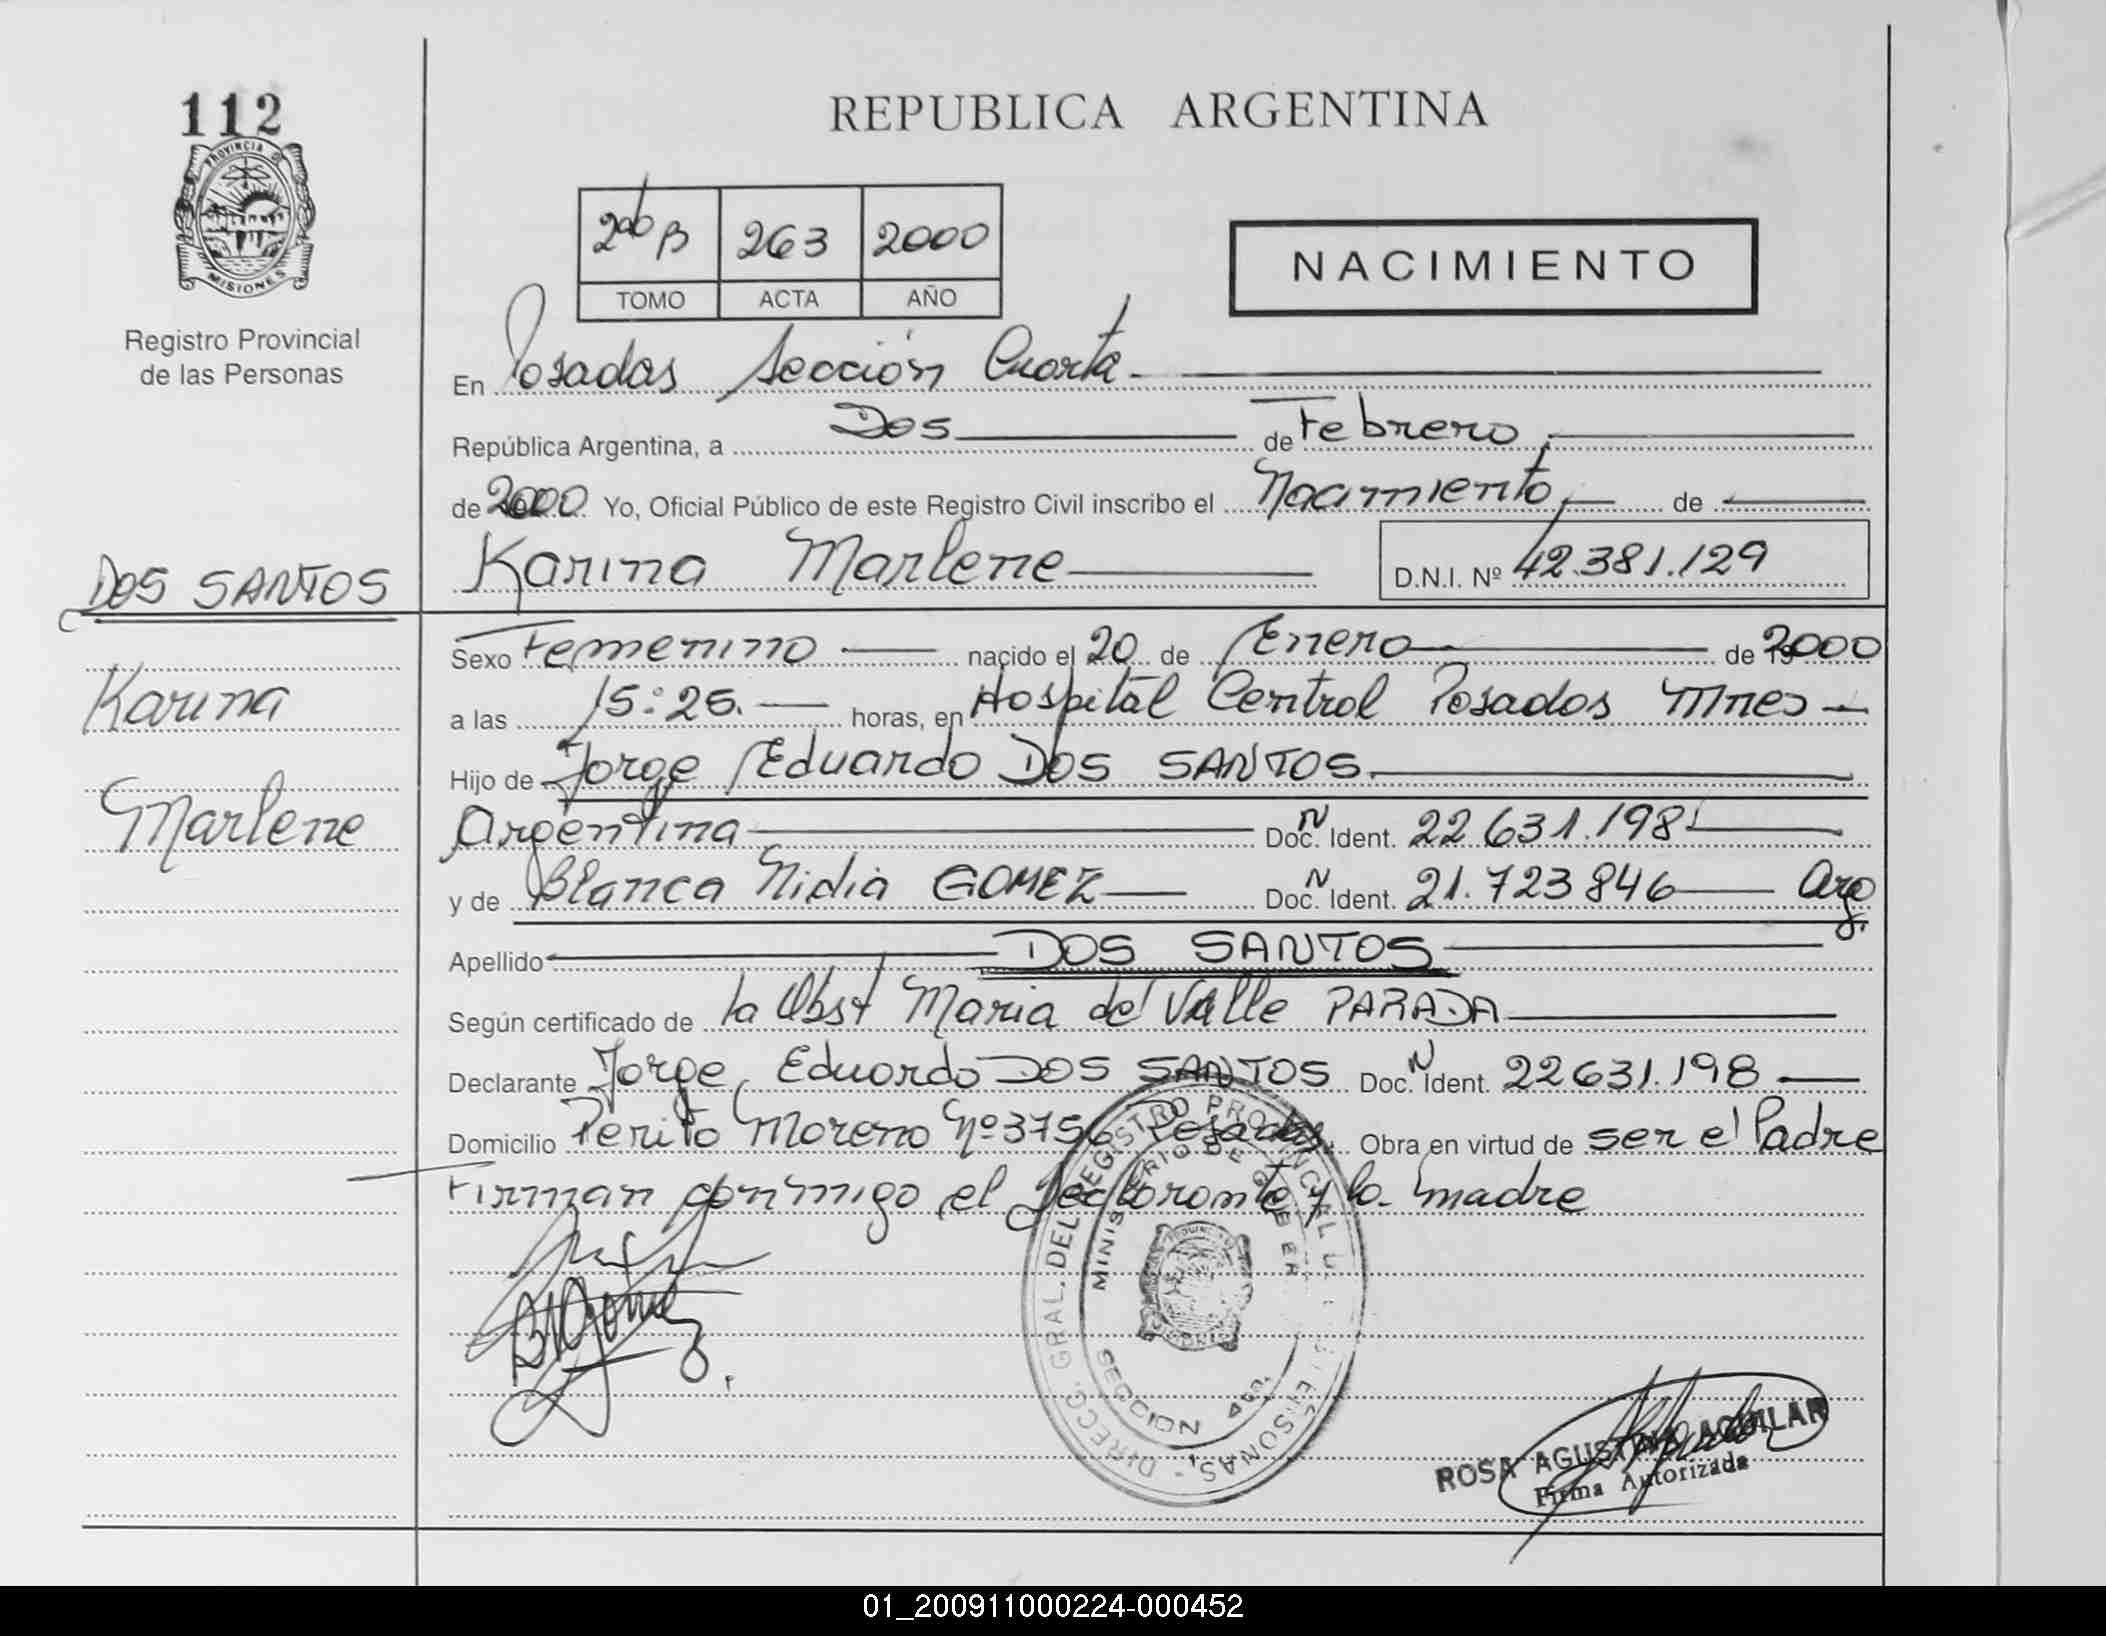 112
PROVINCIA DE
MISIONES
Registro Provincial
de las Personas
REPUBLICA ARGENTINA
2do B 263 2000
TOMO ACTA AÑO
NACIMIENTO
En Posadas Sección Cuarta
República Argentina, a Dos de Febrero
de 2000 Yo, Oficial Público de este Registro Civil inscribo el Nacimiento de
Karina Marlene D.N.I. Nº 42.381.129
DOS SANTOS
Karina
Marlene
Sexo Femenino nacido el 20 de Enero de 2000
a las 15:25. horas, en Hospital Central Posadas Mnes
Hijo de Jorge Eduardo DOS SANTOS
Argentina Doc. N Ident. 22.631.198
y de Blanca Nidia GOMEZ Doc. N Ident. 21.723846 Arg.
Apellido DOS SANTOS
Según certificado de la Obst Maria del Valle PARADA
Declarante Jorge Eduardo DOS SANTOS Doc. N Ident. 22631.198
Domicilio Perito Moreno Nº 3756 Posadas. Obra en virtud de ser el Padre
Firman conmigo el declarante y la madre
BNGomez
DIRECC. GRAL. DEL REGISTRO PROVINCIAL PERSONAS
MINISTERIO DE GOBIER
SECCION 4ta.
ROSA AGUSTINA AGUILAR
Firma Autorizada
01_200911000224-000452